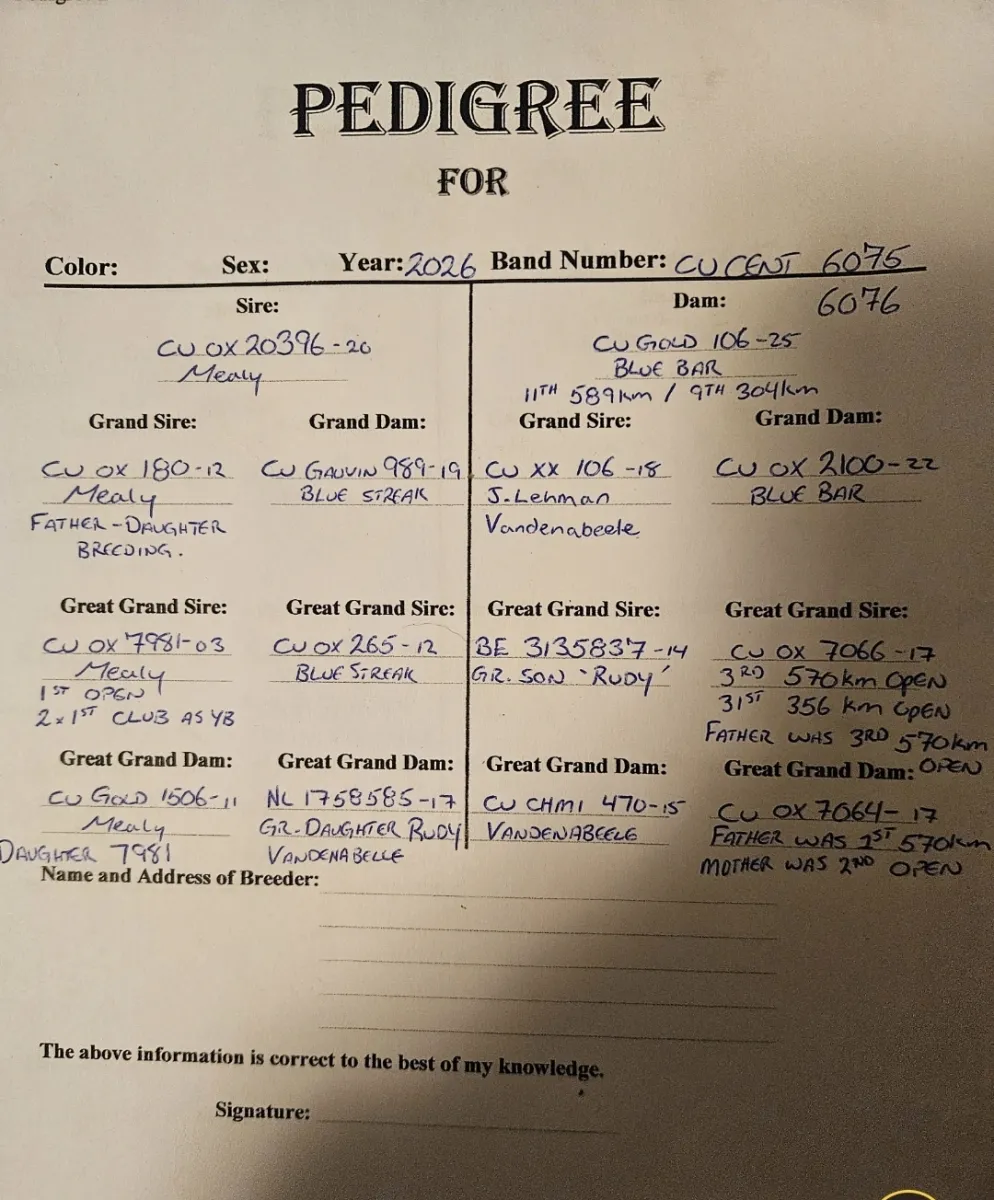 PEDIGREE
FOR
Color: Sex: Year: 2026 Band Number: CU CENT 6075
6076
Sire:
CU OX 20396-20
Mealy
Dam:
CU GOLD 106-25
BLUE BAR
11TH 589km / 9TH 304km
Grand Sire:
CU OX 180-12
Mealy
FATHER-DAUGHTER
BREEDING.
Grand Dam:
CU GAUVIN 989-19
BLUE STREAK
Grand Sire:
CU XX 106-18
J. Lehman
Vandenabeele
Grand Dam:
CU OX 2100-22
BLUE BAR
Great Grand Sire:
CU OX 7981-03
Mealy
1ST OPEN
2x1ST CLUB AS YB
Great Grand Sire:
CU OX 265-12
BLUE STREAK
Great Grand Sire:
BE 3135837-14
GR. SON 'RUDY'
Great Grand Sire:
CU OX 7066-17
3RD 570km OPEN
31ST 356 km OPEN
FATHER WAS 3RD 570km
OPEN
Great Grand Dam:
CU GOLD 1506-11
Mealy
DAUGHTER 7981
Great Grand Dam:
NL 1758585-17
GR-DAUGHTER RUDY
VANDENABELLE
Great Grand Dam:
CU CHMI 470-15
VANDENABEELE
Great Grand Dam:
CU OX 7064-17
FATHER WAS 1ST 570km
MOTHER WAS 2ND OPEN
Name and Address of Breeder:
The above information is correct to the best of my knowledge.
Signature: